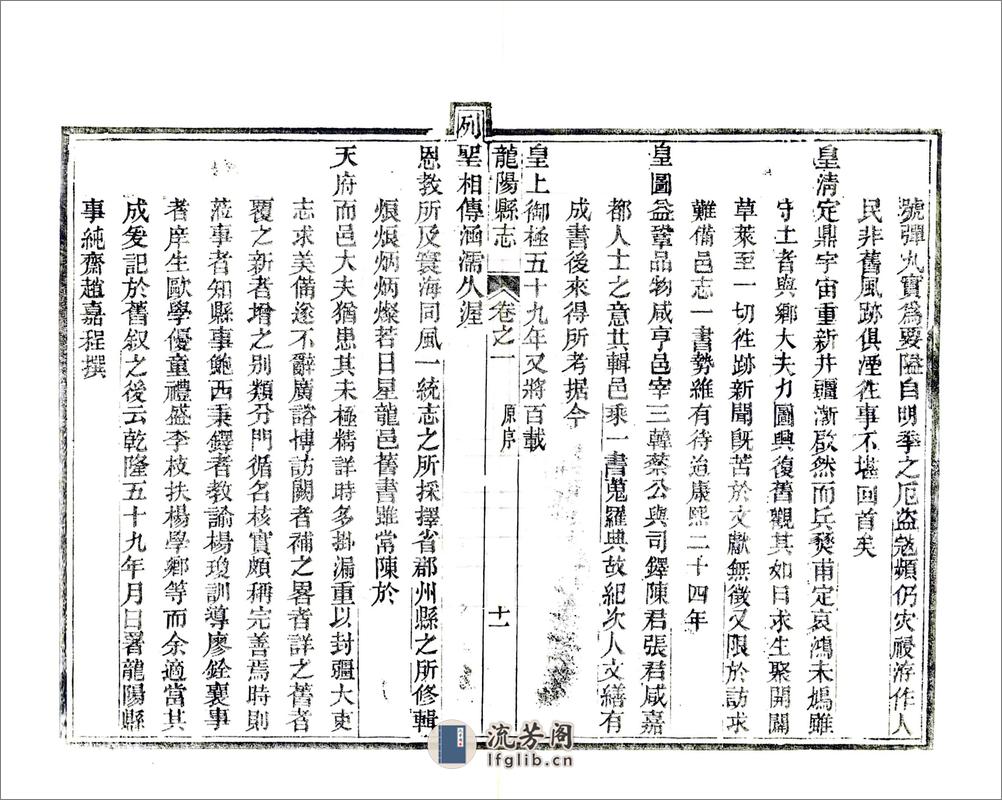 號彈丸實爲要隘自明季之厄盜寇頻仍灾祲洊作人
民非舊風跡俱湮往事不堪回首矣
皇清定鼎宇宙重新井疆漸啟然而兵燹甫定哀鴻未媯雖
守土者與鄉大夫力圖興復舊觀其如日求生聚開闢
草萊至一切徃跡新聞旣苦於文獻無徵又限於訪求
難備邑志一書勢維有待迨康熙二十四年
皇圖益鞏品物咸亨邑宰三韓蔡公與司鐸陳君張君咸嘉
都人士之意共輯邑乘一書蒐羅典故紀次人文繕有
成書後來得所考据今
皇上御極五十九年又將百載
龍陽縣志 卷之一 原序 十一
列聖相傳涵濡久渥
恩教所及寰海同風一統志之所採擇省郡州縣之所修輯
烺烺炳炳燦若日星龍邑舊書雖常陳於
天府而邑大夫猶患其未極精詳時多掛漏重以封疆大吏
志求美備遂不辭廣諮博訪闕者補之畧者詳之舊者
覆之新者增之別類分門循名核實頗稱完善焉時則
蒞事者知縣事鮑西秉鐸者教諭楊瓊訓導廖銓襄事
者庠生歐學優童禮盛李枝扶楊學鄉等而余適當其
成爰記於舊叙之後云乾隆五十九年月日署龍陽縣
事純齋趙嘉程撰
流芳阁
lfglib.cn